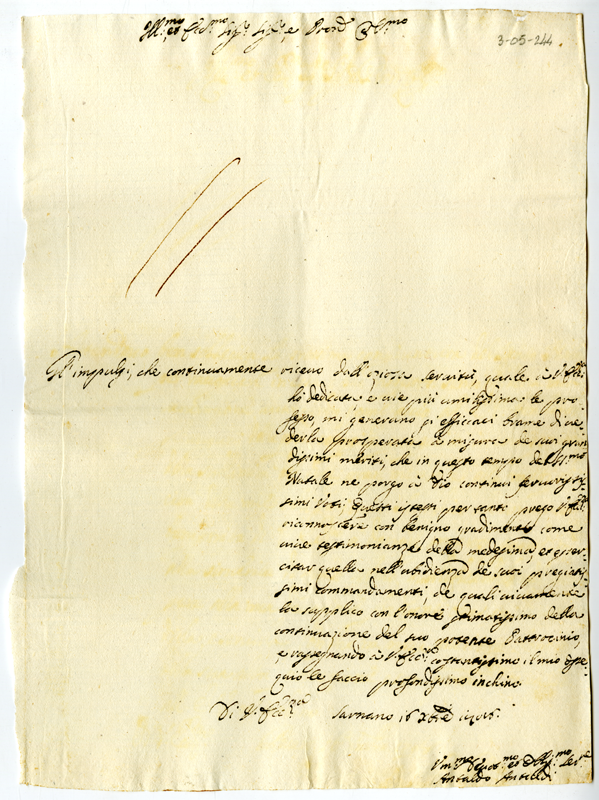 Ill.mo et Ecc.mo Sig.r Sig.r e Pron
3-05-244
Gl'impulsi, che continuamente ricevo dall' servitù, quale à V. Ecc.za
hò dedicata, e vie più umilissima le pro-
fesso, mi generano sì efficaci brame di ve-
derla prosperata à misura de suoi gran-
dissimi meriti, che in questo tempo del S.mo
Natale ne porgo à Dio continui ferverosis-
simi Voti; Questi istessi per tanto prego V. Ecc.za
riconoscere con benigno gradimento come
vive testimonianze della medesima, et eser-
citar quella nell'ubidienza de suoi pregiatis-
simi commandamenti, de quali vivamente
la supplico con l'onore stimatissimo della
continuazione del suo potente Patrocinio,
e rassegnando à V. Ecc.za costantissimo il mio osse-
quio le faccio profondissimo inchino.
Di V. Ecc.za Sarnano 16
Um.mo Devot.mo et Obblig.mo Ser.e
Antaldo Antaldi